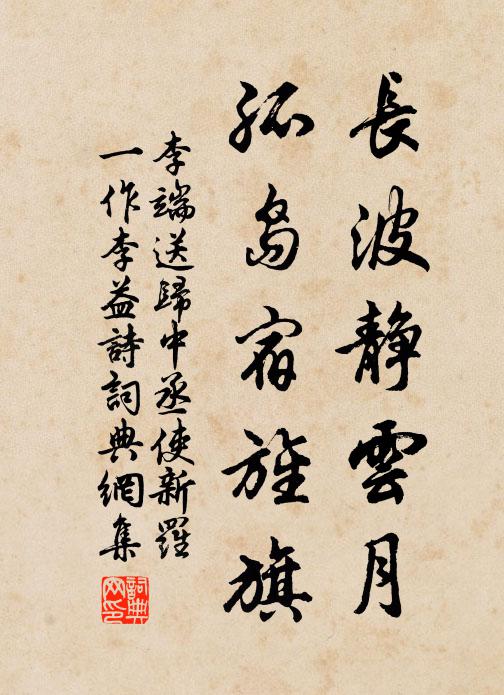 長波靜雲月
孤島宿旌旗
李端送歸中丞使新羅
一作李益詩詞典網集
詞典
网印